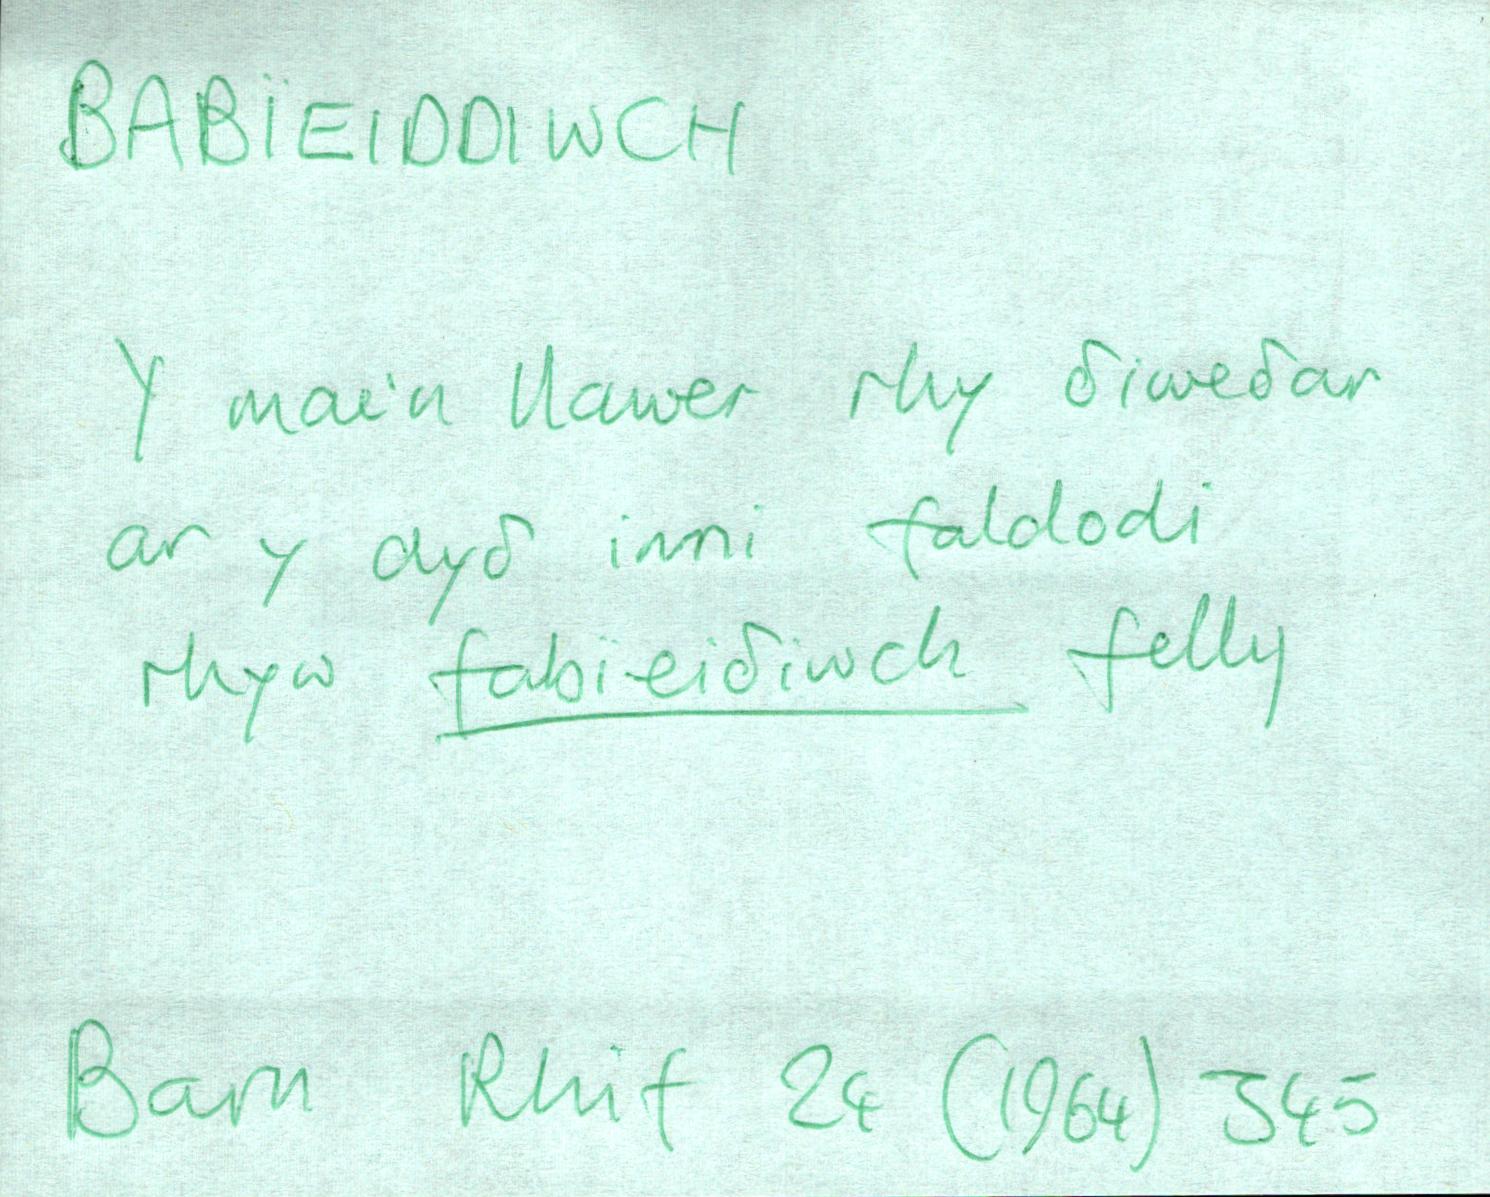 BABÏEIDDIWCH
Y mae'n llawer rhy δiweδar
ar y dyδ inni faldodi
rhyw fabïeiδiwch felly
Barn Rhif 24 (1964) 345